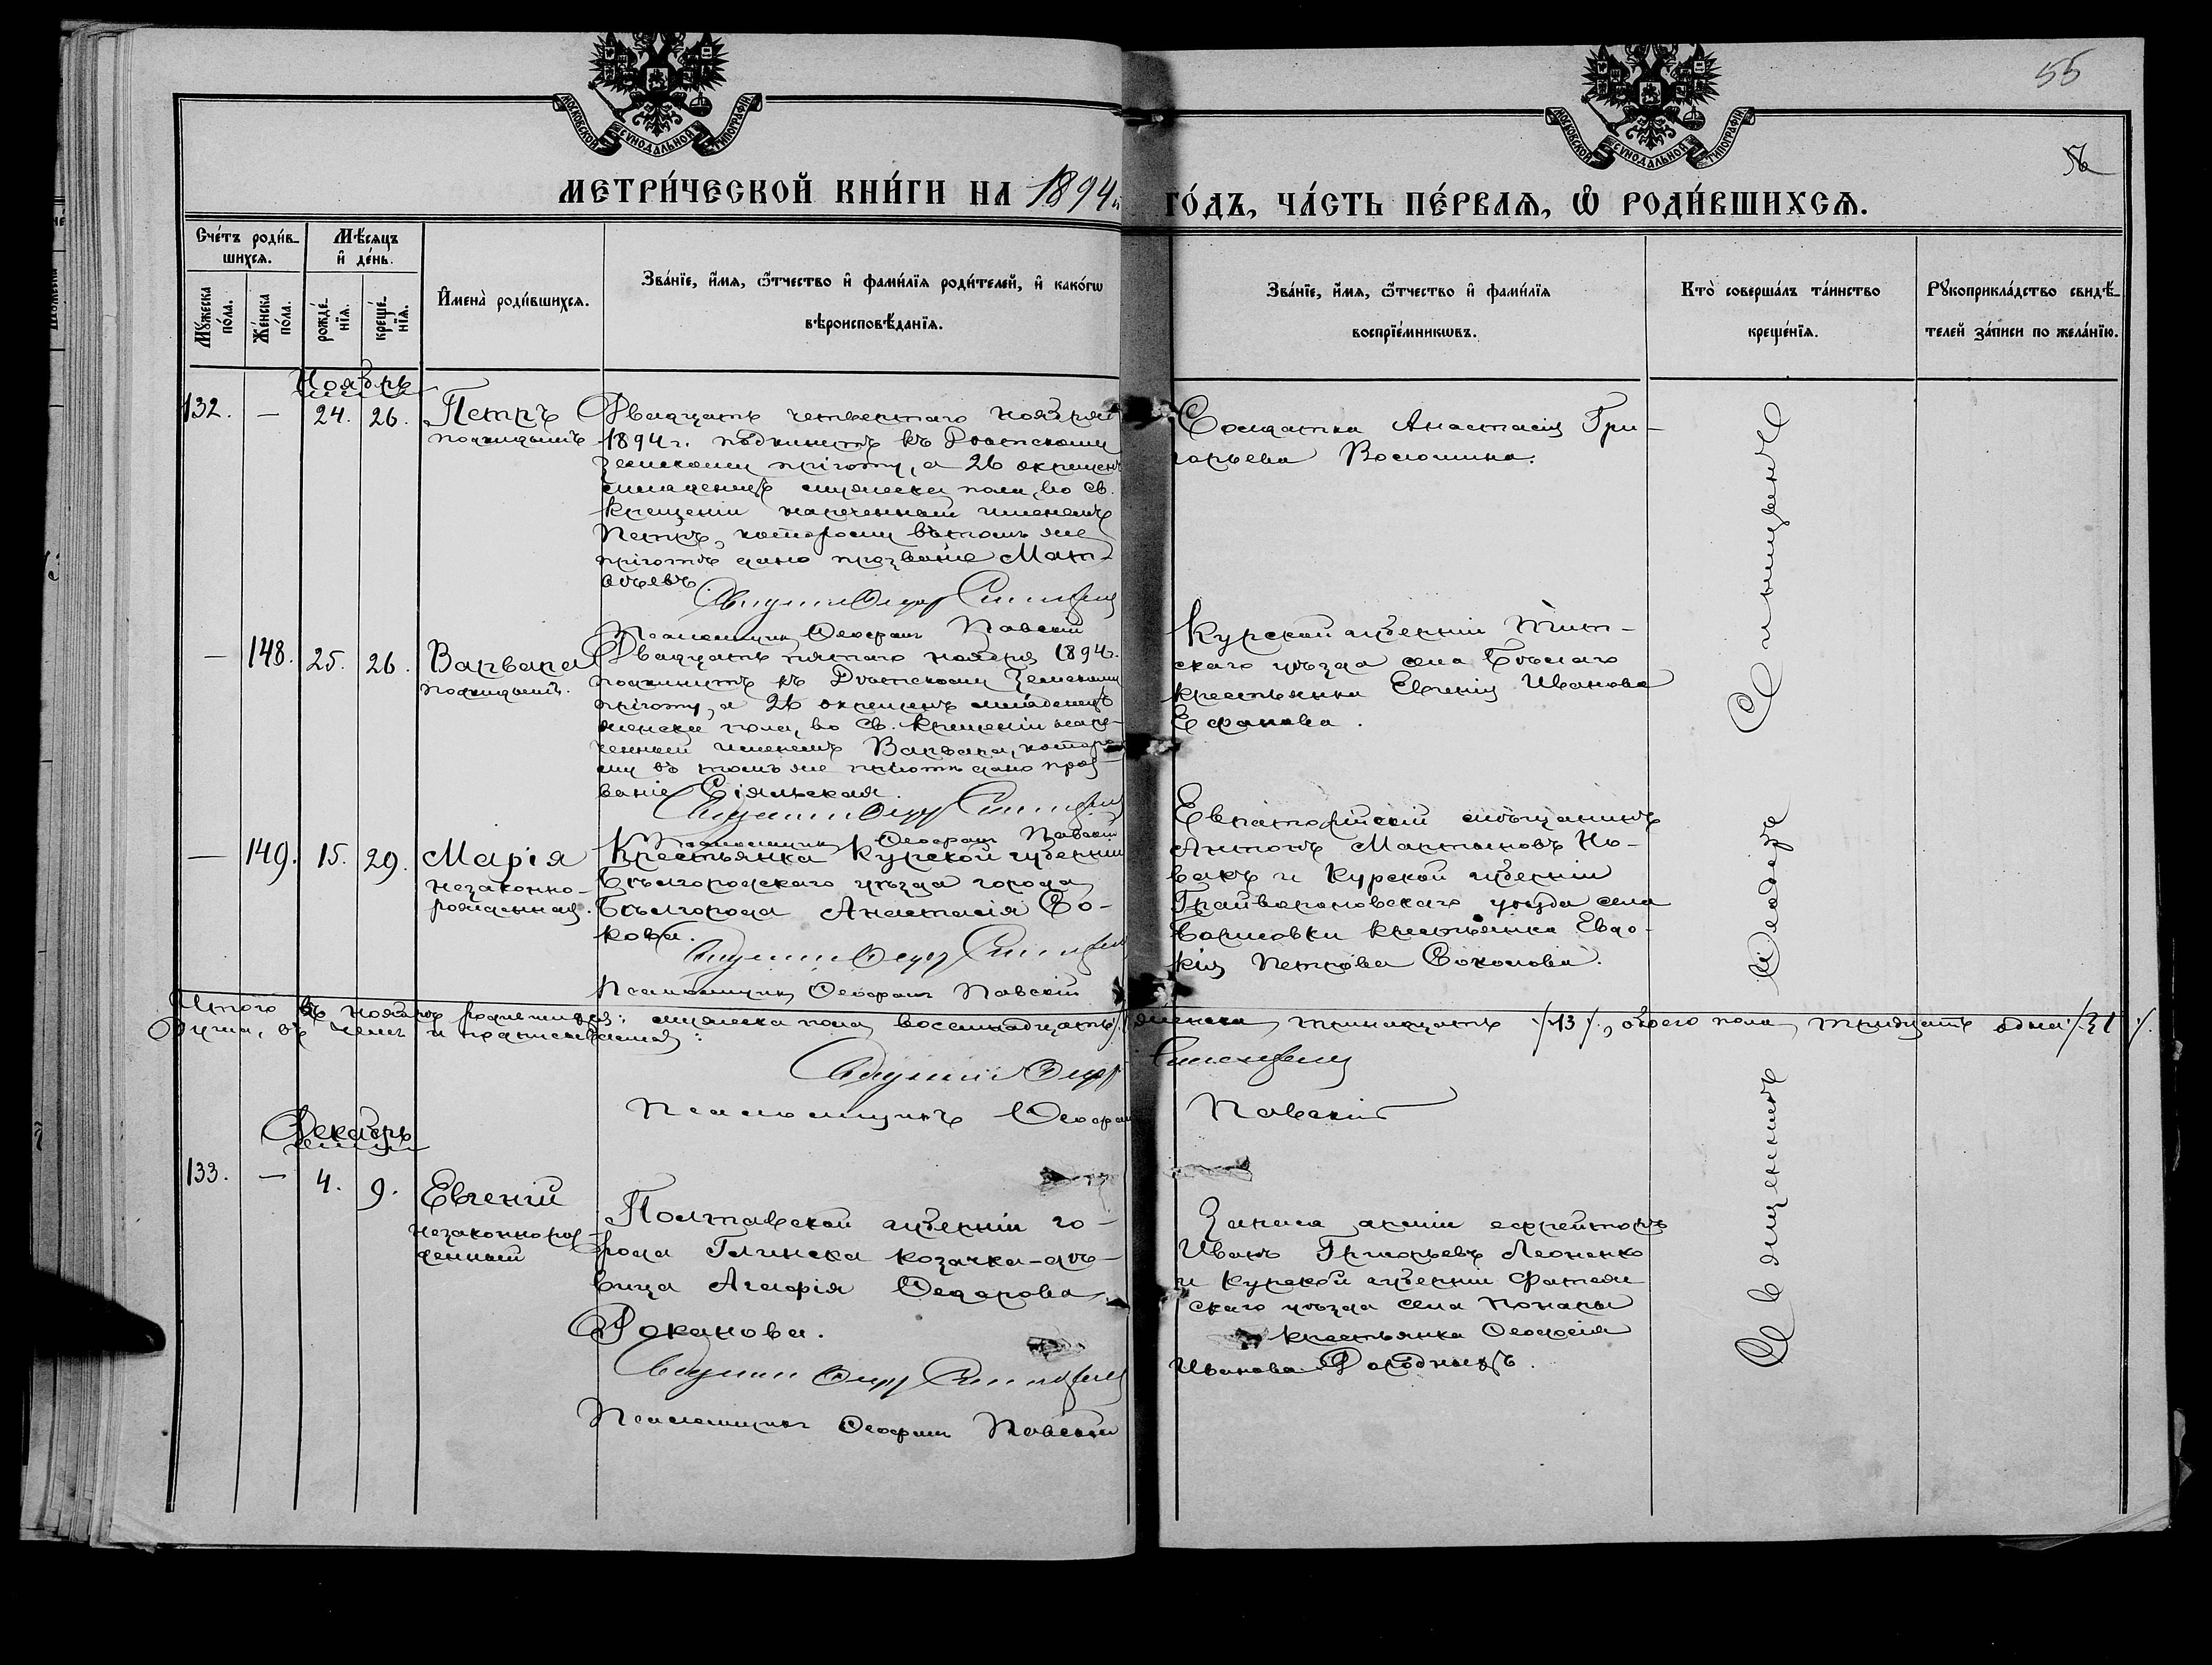 55
56
МОСКОВСКОЙ СѴНОДАЛЬНОЙ ТИПОГРАФІИ
МОСКОВСКОЙ СѴНОДАЛЬНОЙ ТИПОГРАФІИ
МЕТРИ́ЧЕСКОЙ КНИ́ГИ НА 1894 ГО́ДЪ, ЧА́СТЬ ПЕ́РВАѦ, Ѡ҆ РОДИ́ВШИХСѦ.
Сче́тъ роди́в-
шихсѧ.
Мꙋ́жеска по́ла.
Же́нска по́ла.
Мѣ́сѧцъ
и҆ де́нь.
рожде́-
нїѧ.
креще́-
нїѧ.
И҆мена̀ роди́вшихсѧ.
Зва́нїе, и҆́мѧ, ѻ҆́тчество и҆ фами́лїѧ роди́телей, и҆ како́гѡ
вѣроисповѣ́данїѧ.
Зва́нїе, и҆́мѧ, ѻ҆́тчество и҆ фами́лїѧ
воспрїе́мникѡвъ.
Кто̀ соверша́лъ та́инство
креще́нїѧ.
Рꙋкоприкла́дство свидѣ́-
телей за́писи по жела́нїю.
Ноябрь
132. — 24. 26. Петръ
подкидышъ
Двадцать четвертаго ноября
1894 г. подкинутъ къ
Земскому пріюту, а 26 окрещенъ
младенецъ мужеска пола, во св.
крещеніи нареченный именемъ
Петръ, которому въ томъ же
пріютѣ дано прозваніе Мат-
вѣевъ.
Псаломщикъ Ѳеофанъ Павскій
Солдатка Анастасія Гри-
горьева Волошина.
— 148. 25. 26. Варвара
подкидышъ.
Двадцать пятаго ноября 1894 г.
подкинутъ къ Земскому
пріюту, а 26 окрещенъ младенецъ
женска пола, во св. крещеніи наре-
ченный именемъ Варвара, которо-
му въ томъ же пріютѣ дано проз-
ваніе
Псаломщикъ Ѳеофанъ Павскій
Курской губерніи Тим-
скаго уѣзда села
крестьянка Евгенія Иванова
Ефанова.
— 149. 15. 29. Марія
незаконно-
рожденная.
Крестьянка Курской губерніи
Бѣлгородскаго уѣзда города
Бѣлгорода Анастасія Бо-
кова.
Псаломщикъ Ѳеофанъ Павскій
Евпаторійскій мѣщанинъ
Антонъ Мартыновъ Но-
вакъ и Курской губерніи
Грайвороновскаго уѣзда села
Борисовки крестьянка Евдо-
кія Петрова Соколова.
Итого въ ноябрѣ родившихся: мужеска пола восемнадцать, женска тринадцать /13/, обоего пола тридцать одна /31/.
душа, въ чемъ и подписываемся:
Псаломщикъ Ѳеофанъ Павскій
Декабрь
133. — 4. 9. Евгеній
незаконнорож-
денный
Полтавской губерніи го-
рода Глинска козачка-дѣ-
вица Агафія Ѳедорова
Роканова.
Псаломщикъ Ѳеофанъ Павскій
Запаса арміи ефрейторъ
Иванъ Григорьевъ Леоненко
и Курской губерніи Фатеж-
скаго уѣзда села Понары
крестьянка Ѳеодосія
Иванова
Священникъ Ѳеодоръ